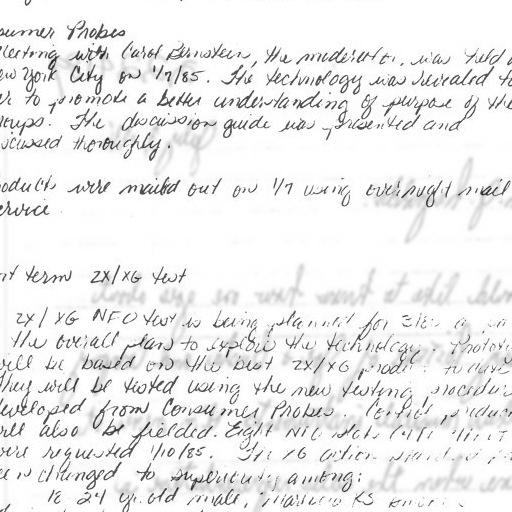 sumer Probes
Meeting with Carol Bernstein, the moderator, was held
ew York City on 1/7/85. The technology was revealed to
er to promote a better understanding of purpose of the
roups. The discussion guide was presented and
scussed thoroughly.
oducts were mailed out on 1/7 using overnight mail
ervice.
ort term 2X/XG test
2X/XG NFO test is being planned for 3/85
the overall plan to explore the technology.
will be based on the best 2X/XG to date
They will be tested using the new testing procedure
developed from Consumer Probes.
will also be fielded. Eight NFO
were requested 1/10/85. The XG action
is changed to superiority among:
18 24 yr. old male,